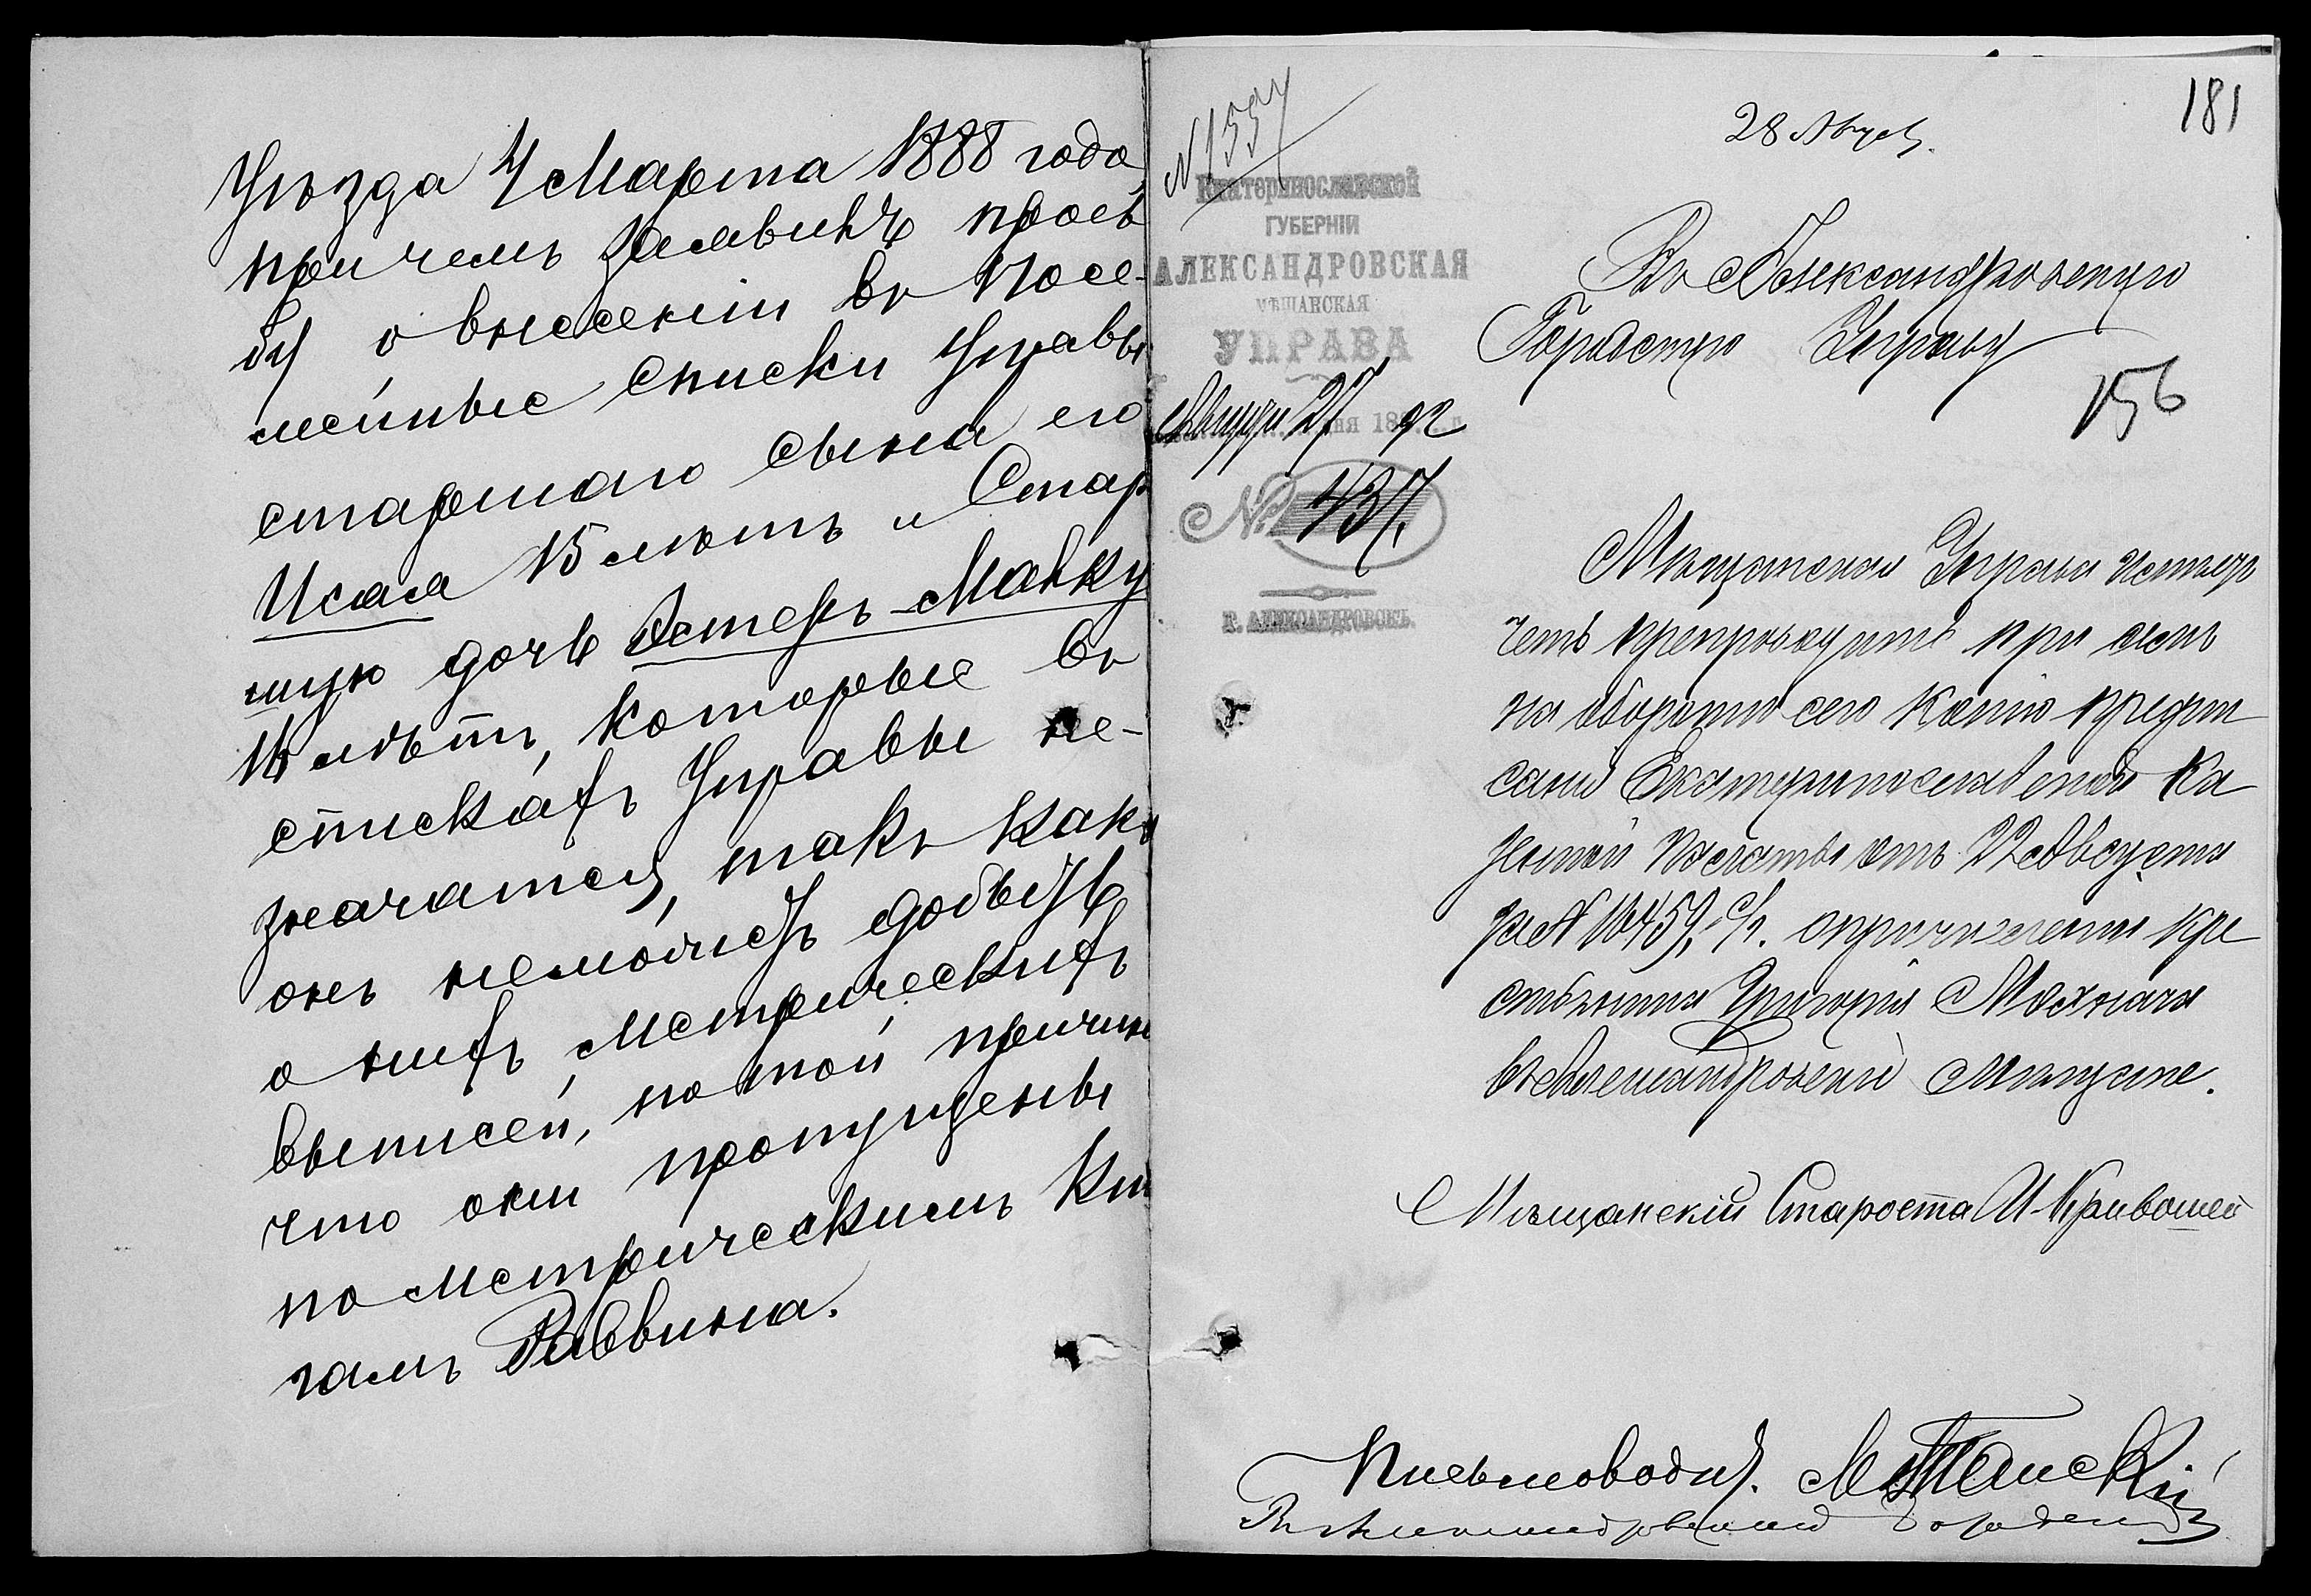 Уѣзда 4 Марта 1888 года,
при чемъ заявилъ прось
бу о внесеніи въ посе-
мейные списки Управы
старшаго сына его
Исаа 15 лѣтъ и Стар
шую дочь Эстеръ-Маńку
16 лѣтъ, которые въ
спискахъ Управы не-
значатся, такъ какъ
онъ неможетъ добыть
о нихъ метрическихъ
выписей, по той причинѣ
что они пропущены
по метрическимъ Кни
гамъ Раввина.
181
28 Август.
N 1554
Екатеринославской
ГУБЕРНІИ
АЛЕКСАНДРОВСКАЯ
МѢЩАНСКАЯ
УПРАВА
Августа 27 дня 1892 г.
№ 437.
Г. АЛЕКСАНДРОВСКЪ.
Въ Александровскую
Городскую Управу
156
Мѣщанская Управа имѣетъ
честь препроводить при семъ
на оборотѣ сего копію предпи
санія Екатеринославской Ка
зенной Палаты отъ 22 Августа
за № 16459, с/г. о причисленіи кре
стьянина Григорія Мохнача
въ Александровскіе мѣщане.
Мѣщанскій Староста И Кривошей
Письмоводит.
Въ Александровскую Городскую